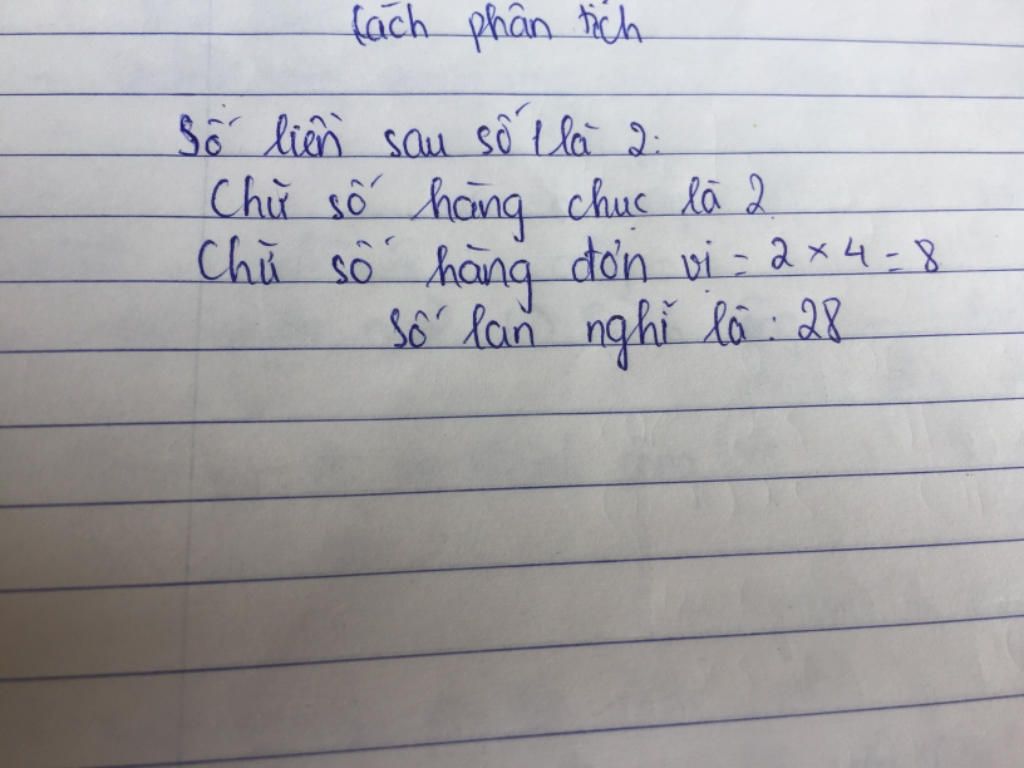 Cách phân tích
Số liền sau số 1 là 2.
Chữ số hàng chục là 2
Chữ số hàng đơn vị = 2 × 4 = 8
Số lan nghĩ là : 28